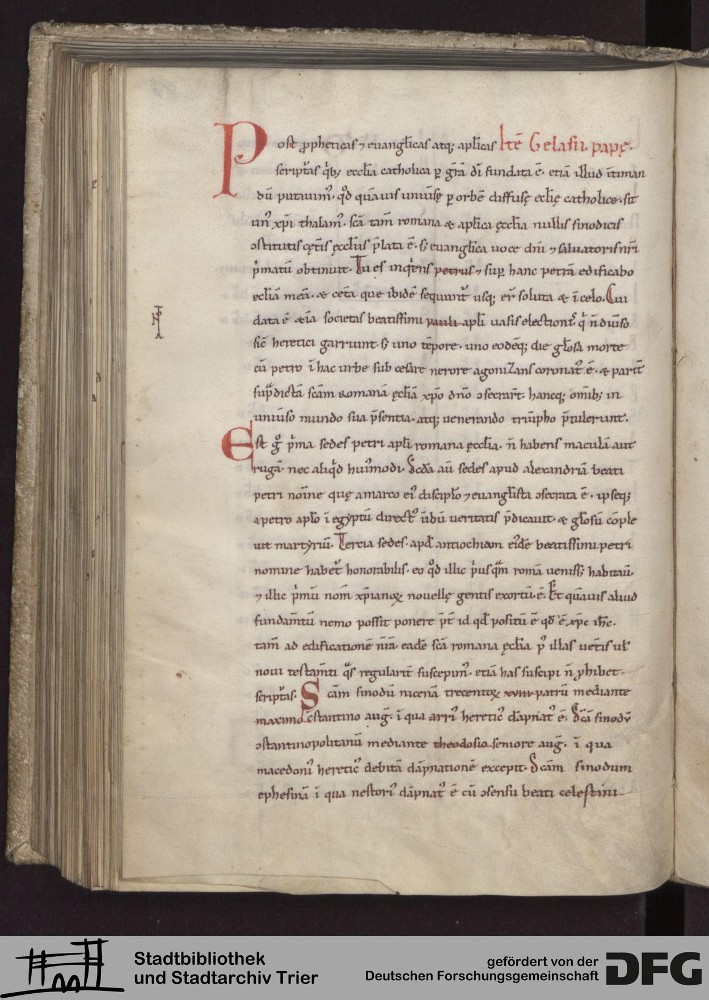 Post ꝓpheticas ⁊ euanglicas atq; aplicas Itē Gelasii papę.
scriptas q̇b; ecclia catholica ꝑ grā dī fundata ē. etiā illud ītiman
dū putauim᷒. qđ quāuis uniuͥsę ꝑ orbē diffusę ecclię catholicę. sit
un᷒ xpi thalam᷒. scā tam̄ romana & aplica ęcclia nullis sinodicis
ɔstitutis cęt̄is ęccliis p̄lata ē. s; euanglica uoce dn̄i ⁊ saluatoris nr̄i
p̄matū obtinuit. Tu es inquiens petrus ⁊ suꝑ hanc petrā edificabo
ecliā meā. & cet̄a que ibidē sequunt᷑ usq; er̄ soluta & ī celo. Cui
data ē &iā societas beatissimi pauli apli uasis electionis q̄ n̄ diuͥso
sic̄ heretici garriunt s; uno tēpore. uno eodēq; die gl̄osa morte
cū petro ī hac urbe sub cesare nerone agonizans coronat᷒ ē. & parit̄
sup̄dictā scām romanā ęcliā xpo dn̄o ɔsecrar̄t hancq; omīb; in
uniuͥso mundo sua p̄sentia. atq; uenerando triūpho p̄tulerunt.
Est g° p̄ma sedes petri apli romana ęcclia. n̄ habens maculā aut
rugā. nec aliq̇d hui᷒modi. Scd̄a aū sedes apud alexandriā beati
petri noīne quę a marco ei᷒ discipl̄o ⁊ euanglista ɔsecrata ē. ipseq;
a petro aplo ī egyptū direct᷒ ūbū ueritatis p̄dicauit. & gl̄osū cōple
uit martyriū. Tercia sedes. apđ antiochiam ei᷒dē beatissimi petri
nomine habet᷑ honorabilis. eo qđ illic p̄usquā romā uenisset habitau̅.
⁊ illic p̄mū nom̄ xpianoꝝ nouellę gentis exortū ē. Et quāuis aliud
fundam̄tū nemo possit ponere p̄t id qđ positū ē qđ ē xpc ihc.
tam̄ ad edificationē n̄rā eadē scā romana ęclia p᷒ illas uet̄is ul̄
noui testam̄ti q̄s regularit̄ suscepim᷒. etiā has suscipi n̄ ꝓhibet.
scripturas. Scām sinodū nicenā trecentoꝝ xviii patrū mediante
maximo ɔstantino aug̅. ī qua arri᷒ heretic᷒ dāpnat᷒ ē. Scām sinodū
ɔstantinopolitanū mediante theodosio seniore aug̅. ī qua
macedoni᷒ heretic᷒ debitā dāpnationē excepit. Scām sinodum
ephesinā ī qua nestori᷒ dāpnat᷒ ē cū ɔsensu beati celestini
Stadtbibliothek
und Stadtarchiv Trier
gefördert von der
Deutschen Forschungsgemeinschaft
DFG